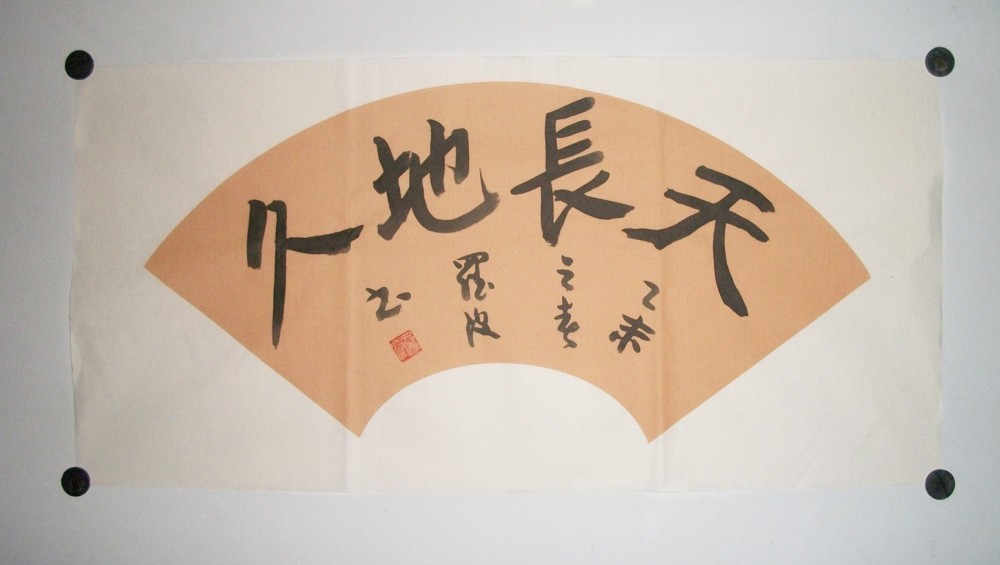 天長地久
乙未
之春
羅波
书